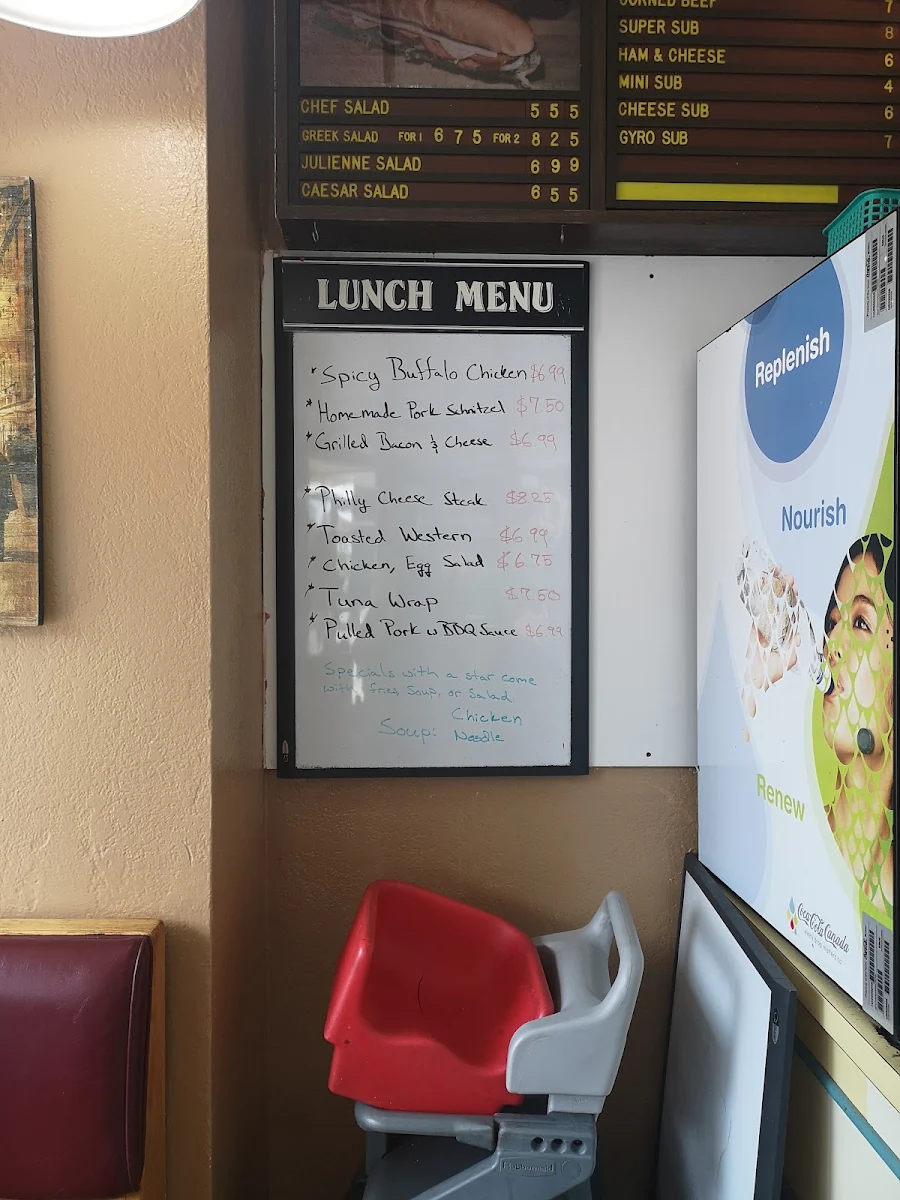 CORNED BEEF 7
SUPER SUB 8
HAM & CHEESE 6
MINI SUB 4
CHEESE SUB 6
GYRO SUB 7
CHEF SALAD 5 5 5
GREEK SALAD FOR 1 6 7 5 FOR 2 8 2 5
JULIENNE SALAD 6 9 9
CAESAR SALAD 6 5 5
LUNCH MENU
* Spicy Buffalo Chicken $6.99
* Homemade Pork Schnitzel $7.50
* Grilled Bacon & Cheese $6.99
* Philly Cheese Steak $8.25
* Toasted Western $6.99
* Chicken, Egg Salad $6.75
* Tuna Wrap $7.50
* Pulled Pork w BBQ Sauce $6.99
Specials with a star come
with fries, Soup, or Salad
Soup: Chicken
Noodle
Replenish
Nourish
Renew
Coca-Cola Canada
Rubbermaid